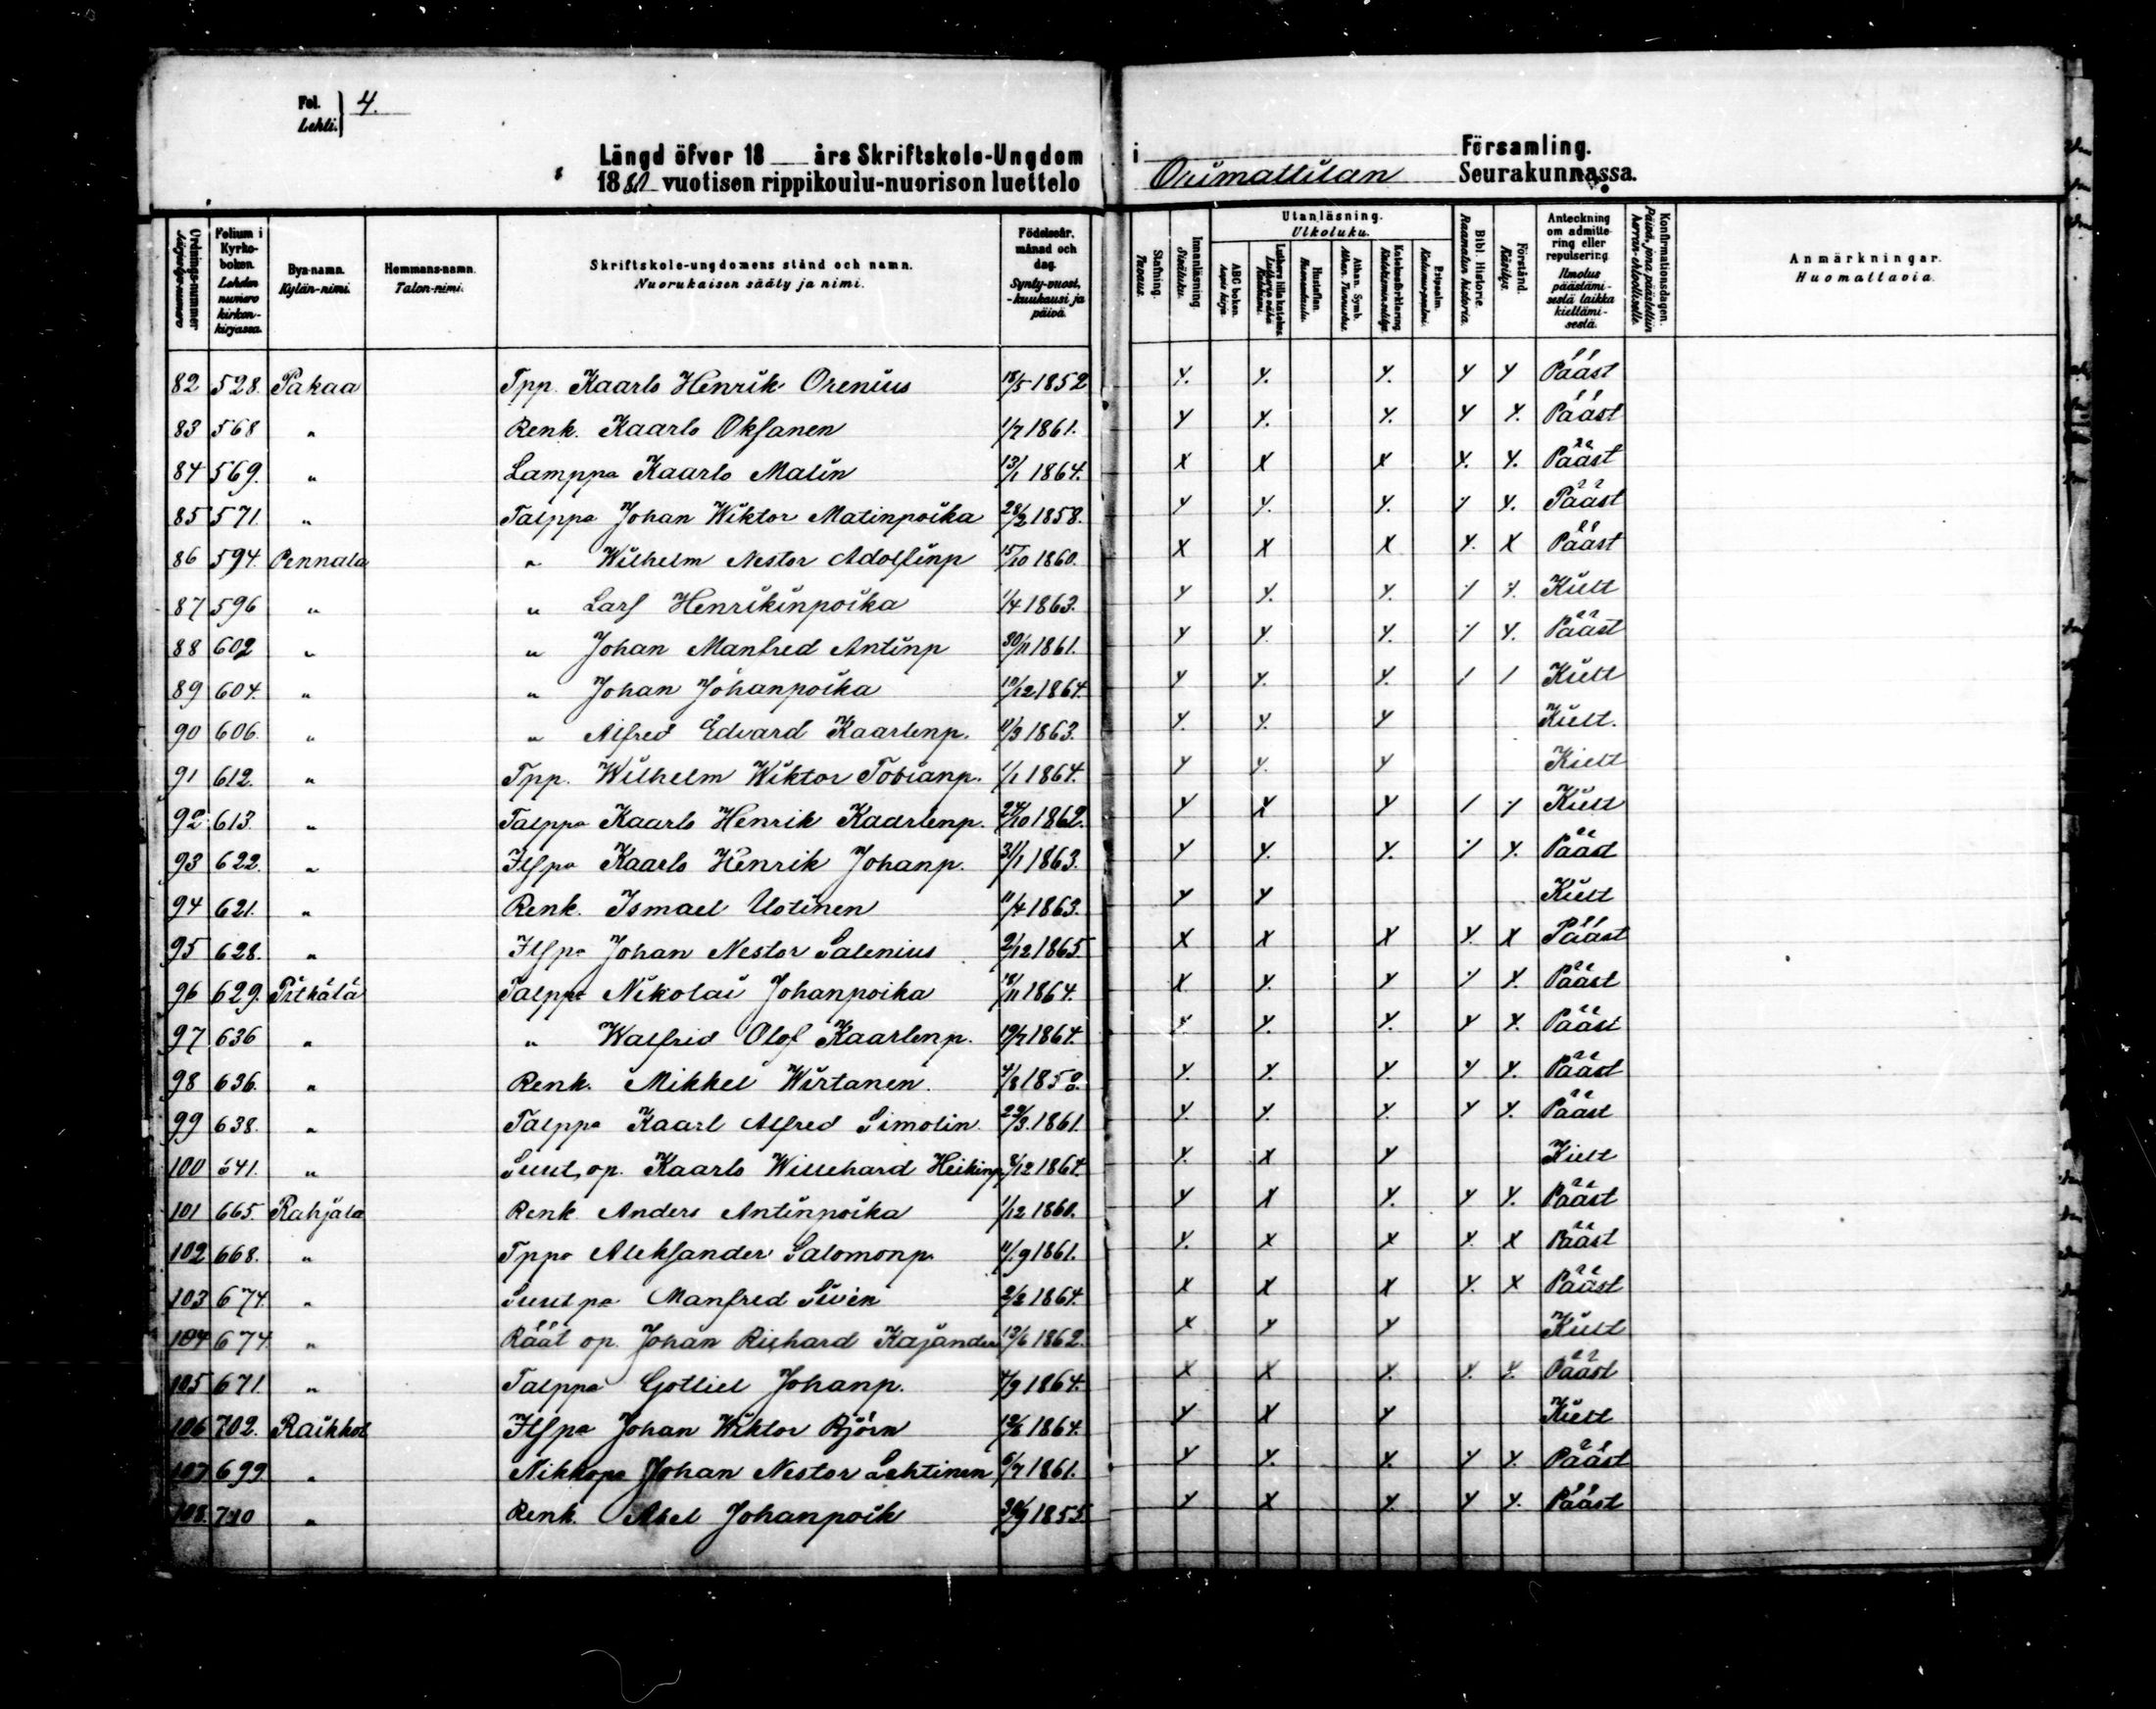 Fol. Lehti. 4.
Längd öfver 18 års Skriftskole-Ungdom i Församling.
1880 vuotisen rippikoulu-nuorison luettelo Orimattilan Seurakunnassa.
Ordnings-nummer Järjestys-numero | Folium i Kyrko-boken. Lehden numero kirkon-kirjassa. | Bya-namn. Kylän-nimi. | Hemmans-namn. Talon-nimi. | Skriftskole-ungdomens stånd och namn. Nuorukaisen sääty ja nimi. | Födelseår, månad och dag. Synty-vuosi, -kuukausi ja päivä. | Stafning. Tavaus. | Innanläsning Sisäluku. | Utanläsning. Ulkoluku. | ABC boken. Aapis kirja. | Luthers lilla katekes. Lutherin vähä Katekismi. | Hustaflan. Huoneentaulu. | Athan. Symb. Athan. Tunnustus. | Katekesförklaring. Katekismus-selitys. | Botpsalm. Katumus-psalmi. | Bibl. Historie. Raamatun historia. | Förstånd. Käsitys. | Anteckning om admittering eller repulsering. Ilmoitus päästämisestä taikka kieltämisestä. | Konfirmationsdagen. Päivä, jona päästettiin Herran-ehtoolliselle. | Anmärkningar. Huomattavia.
82 528. Pakaa Tpp. Kaarlo Henrik Orenius 18/5 1852 Y. Y. Y. Y Y Pääst
83 568 " Renk. Kaarlo Oksanen 1/7 1861. Y Y. Y. Y Y. Pääst
84 569. " Lamppa Kaarlo Malin 13/1 1864. X X X Y. Y. Pääst
85 571 " Talppa Johan Wiktor Matinpoika 28/2 1858. Y Y. Y. / Y. Pääst
86 594. Pennala " Wilhelm Nestor Adolfinp 15/10 1860. X X X Y. X Pääst
87 596 " " Lars Henrikinpoika 1/4 1863. Y Y. Y. / Y. Kielt
88 602 " " Johan Manfred Antinp 30/11 1861. Y Y. Y. / Y. Pääst
89 604. " " Johan Johanpoika 10/12 1864. Y Y. Y. / / Kielt
90 606. " " Alfred Edvard Kaarlenp. 11/3 1863. Y. Y. Y Kielt.
91 612. " Tpp. Wilhelm Wiktor Tobianp. 1/1 1864. Y Y. Y Kielt
92 613. " Talppa Kaarlo Henrik Kaarlenp. 24/10 1862. Y X Y / / Kielt
93 622. " Itspa Kaarlo Henrik Johanp. 31/1 1863. Y Y. Y. / Y. Pääst
94 621. " Renk. Ismael Uotinen 11/4 1863. Y Y Kielt
95 628. " Itspa Johan Nestor Salenius 2/12 1865. X X X Y. X Pääst
96 629. Pitkälä Talppa Nikolai Johanpoika 18/11 1864. X Y. Y / Y. Pääst
97 636 " " Walfrid Olof Kaarlenp. 19/7 1864. Y. Y. Y. Y Y. Pääst
98 636. " Renk. Mikkel Wirtanen. Y. Y. Y. Y Y. Pääst
99 638. " Talppa Kaarl Alfred Simolin. 22/3. 1861. Y. Y. Y. Y Y. Pääst
100 641. " Suut. op. Kaarlo Willehard Heikinp 8/12 1864. Y. X Y Kielt
101 665. Rahjala Renk. Anders Antinpoika 1/12 1860. Y X Y. Y Y. Pääst
102 668. " Tppo Aleksander Salomonp. 11/9 1861. Y. X X Y. X Pääst
103 674. " Suutpa Manfred Siven 2/2 1864. X X X Y. X Pääst
104 674. " Räät op. Johan Richard Kajander 13/6 1862. X Y Y Kielt
105 671. " Talppa Gotlieb Johanp. 4/9 1864. X X Y. Y. Y. Pääst
106 702. Raikkol Itspa Johan Wiktor Björn 12/6 1864. Y X Y Kielt
107 699 " Nikkopa Johan Nestor Lehtinen 6/7 1861. Y Y. Y. Y Y. Pääst
108. 710 " Renk. Abel Johanpoik 30/9 1855. Y X Y. Y Y. Pääst